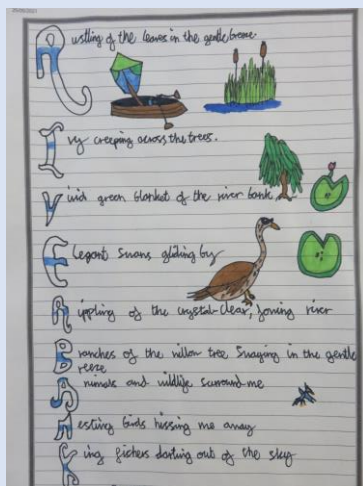 Rustling of the leaves in the gentle breeze.
Ivy creeping across the trees.
Vivid green blanket of the river bank
Elegant swans gliding by
Rippling of the crystal-clear, flowing river
Branches of the willow tree swaying in the gentle
breeze
Animals and wildlife surround me
Nesting birds hissing me away
King fishers darting out of the sky